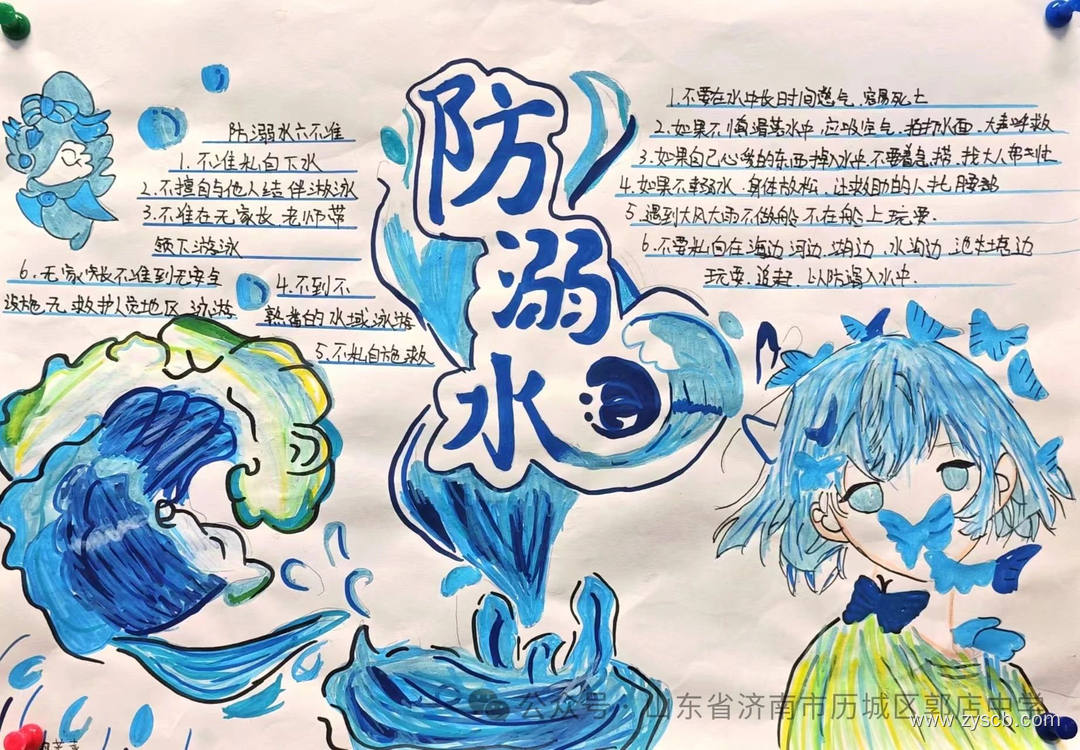 防
溺
水
防溺水六不准
1.不准私自下水
2.不擅自与他人结伴游泳
3.不准在无家长老师带
领下游泳
4.不到不
熟悉的水域泳游
5.不私自施救
6.无家长不准到无安全
设施无救护人员地区泳游
1.不要在水中长时间憋气,容易死亡
2.如果不慎溺落水中,应吸空气,拍打水面,大声呼救
3.如果自己心爱的东西掉入水中不要着急捞,找大人帮忙
4.如果不溺水,身体放松,让救助的人托腰部
5.遇到大风大雨不做船不在船上玩耍.
6.不要私自在海边河边、湖边、水沟边、池塘边
玩耍.追赶.以防溺入水中.
公众号·山东省济南市历城区郭店中学
www.zyscb.com